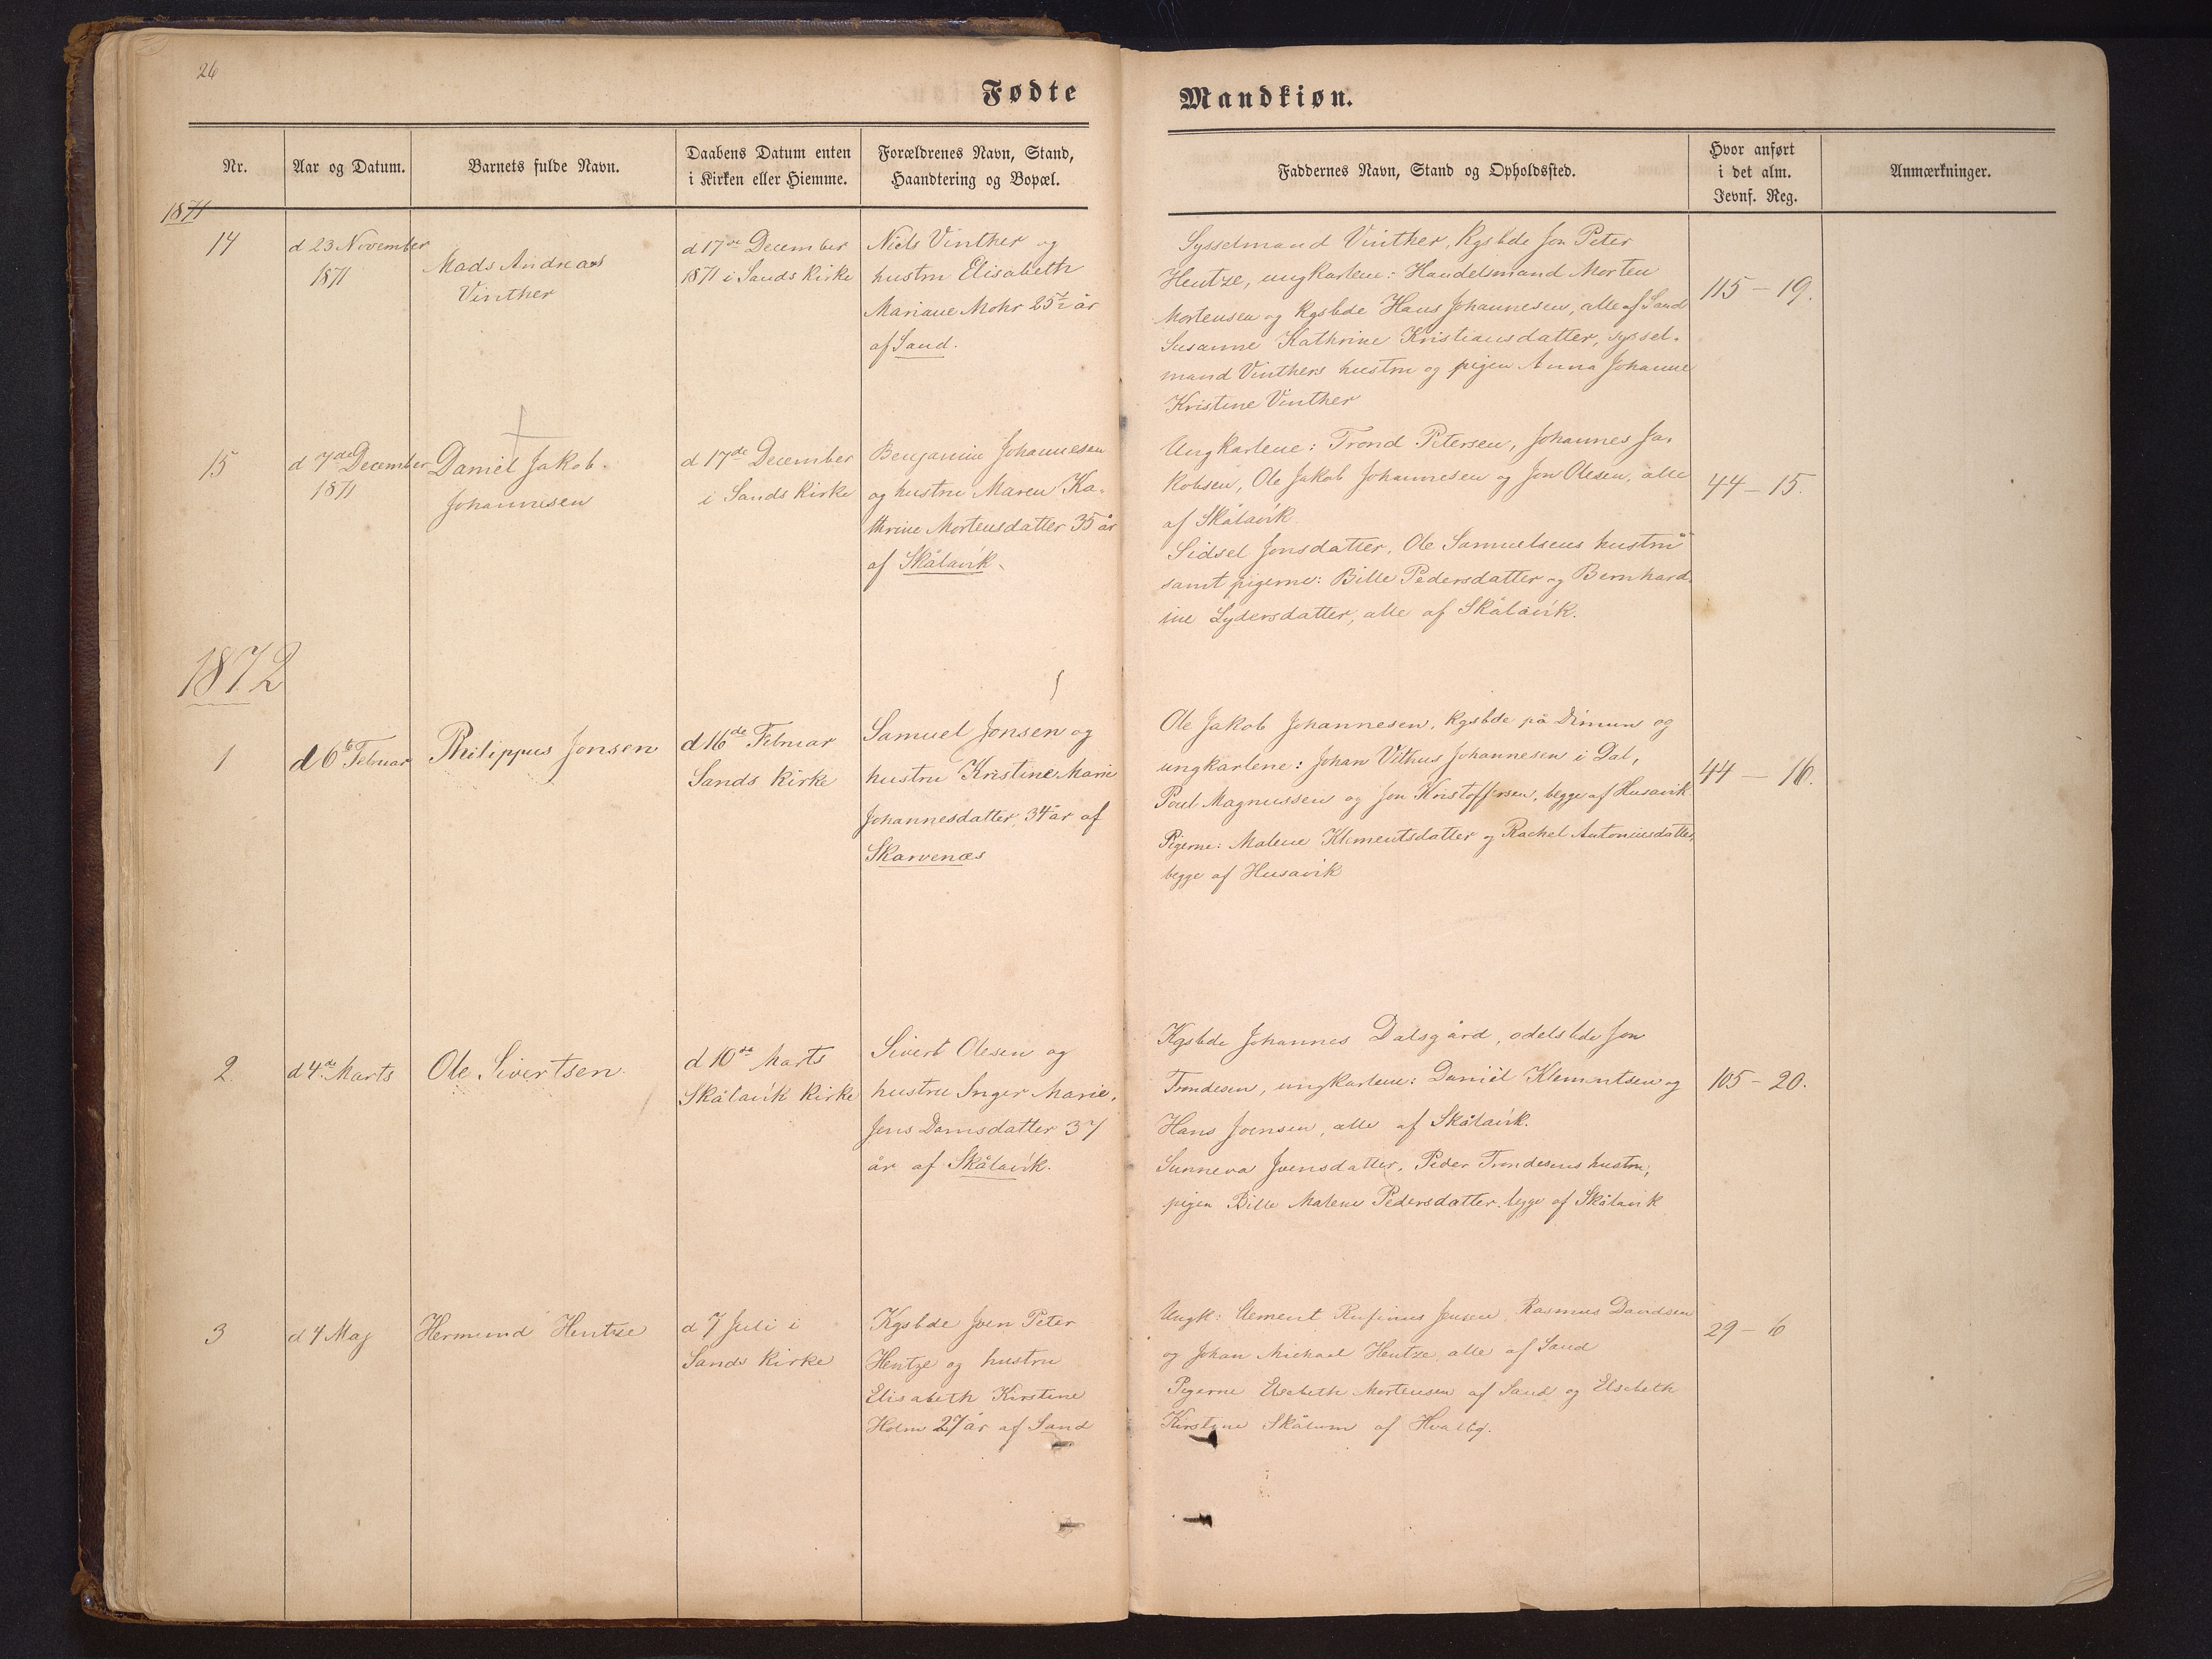 26
Fødte
Mandkiøn.
Nr.
Aar og Datum.
Barnets fulde Navn.
Daabens Datum enten
i Kirken eller Hiemme.
Forældrenes Navn, Stand,
Haandtering og Bopæl.
Faddernes Navn, Stand og Opholdssted.
Hvor anført
i det alm.
Jevnf. Reg.
Anmærkninger.
1871
14
d 23 November
1871
Mads Andreas
Vinther
d 17de December
1871 i Sands Kirke
Niels Vinther og
hustru Elisabeth
Mariane Mohr 25½ år
af Sand.
Sysselmand Vinther, Kgsbde Jon Peter
Hentze, ungkarlene: Handelsmand Morten
Mortensen og Kgsbde Hans Johannesen, alle af Sand
Susanne Kathrine Kristiansdatter, syssel-
mand Vinthers hustru og pigen Anna Johanne
Kristine Vinther
115 - 19.
15
d 7de December
1871
Daniel Jakob
Johannesen
d 17de December
i Sands Kirke
Benjamin Johannesen
og hustru Maren Ka-
thrine Mortensdatter 35 år
af Skålavík.
Ungkarlene: Trond Petersen, Johannes Ja-
kobsen, Ole Jakob Johannesen og Jon Olesen, alle
af Skålavík.
Sidsel Jonsdatter, Ole Samuelsens hustru
samt pigerne: Bille Pedersdatter og Bernhard-
ine Lydersdatter, alle af Skålavík.
44 - 15.
1872
1
d 6te Februar
Philippus Jonsen
d 16de Februar
Sands Kirke
Samuel Jonsen og
hustru Kristine Marie
Johannesdatter, 34 år af
Skarvenæs
Ole Jakob Johannesen, Kgsbde på Dimun og
ungkarlene: Johan Vithus Johannesen i Dal,
Poul Magnussen og Jon Kristoffersen, begge af Husavik
Pigerne: Malene Klementsdatter og Rachel Antoniusdatter,
begge af Husavík
44 - 16.
2.
d 4de Marts
Ole Sivertsen.
d 10de Marts
Skålavík Kirke
Sivert Olesen og
hustru Inger Marie,
Jens Damsdatter 37
år af Skålavík.
Kgsbde Johannes Dalsgård, odelsbde Jon
Trondesen, ungkarlene: Daniel Klementsen og
Hans Joensen, alle af Skålavík.
Sunneva Joensdatter, Peder Trondesens hustru,
pigen Bille Malene Pedersdatter, begge af Skålavik
105 - 20.
3
d 4 Maj
Hermund Hentze
d 7 Juli i
Sands Kirke
Kgsbde Joen Peter
Hentze og hustru
Elisabeth Kirstine
Holm 27 år af Sand
Ungk: Clement Rufinus Jensen, Rasmus Davidsen
og Johan Michael Hentze, alle af Sand
Pigerne Elsebeth Mortensen af Sand og Elsebeth
Kirstine Skålum af Hvalbø.
29 - 6